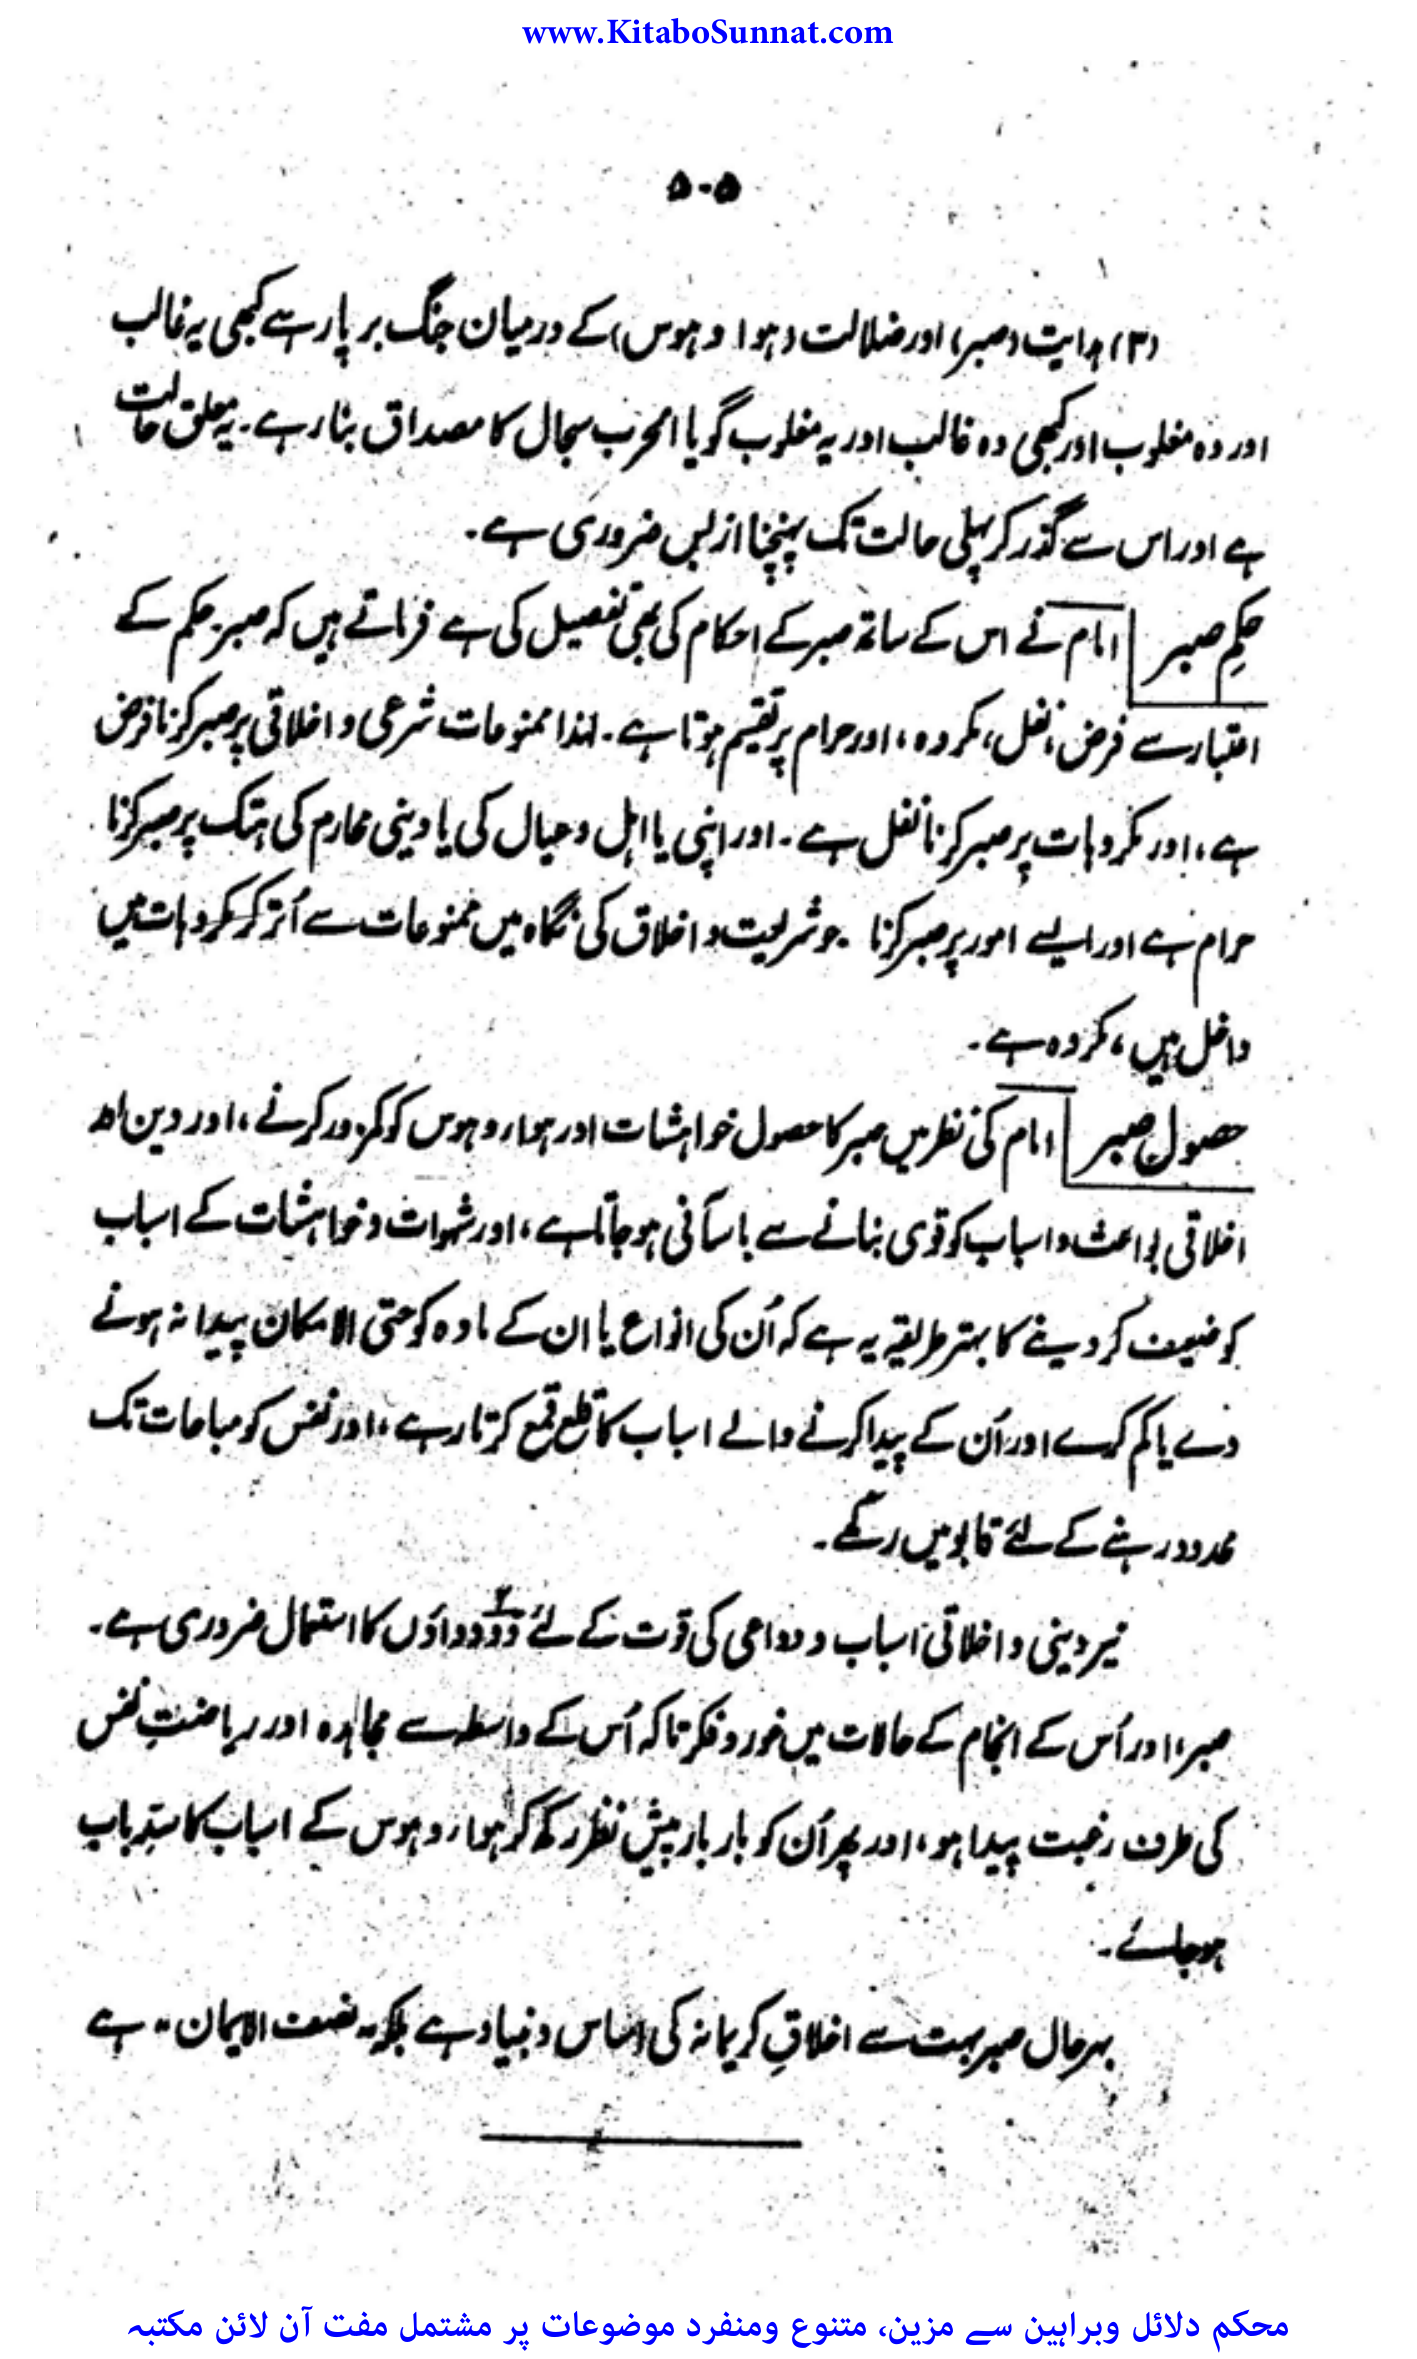 www.KitaboSunnat.com
۵۰۵
(۳) ہدایت (صبر) اور ضلالت (ہوا و ہوس) کے درمیان جنگ برپا رہے کبھی یہ غالب
اور وہ مغلوب اور کبھی وہ غالب اور یہ مغلوب گویا الحرب سجال کا مصداق بنا رہے۔ یہ معلق حالت
ہے اور اس سے گذر کر پہلی حالت تک پہنچنا ازبس ضروری ہے۔
حکمِ صبر امام نے اس کے ساتھ صبر کے احکام کی بھی تفصیل کی ہے فرماتے ہیں کہ صبر حکم کے
اعتبار سے فرض، نفل، مکروہ، اور حرام پر تقسیم ہوتا ہے۔ لہذا ممنوعات شرعی و اخلاقی پر صبر کرنا فرض
ہے، اور مکروہات پر صبر کرنا نفل ہے۔ اور اپنی یا اہل و عیال کی یا دینی محارم کی ہتک پر صبر کرنا
حرام ہے اور ایسے امور پر صبر کرنا جو شریعت و اخلاق کی نگاہ میں ممنوعات سے اُتر کر مکروہات میں
داخل ہیں، مکروہ ہے۔
حصولِ صبر امام کی نظر میں صبر کا حصول خواہشات اور ہواء و ہوس کو کمزور کرنے، اور دین اور
اخلاقی بواعث و اسباب کو قوی بنانے سے بآسانی ہو جاتا ہے، اور شہوات و خواہشات کے اسباب
کو ضعیف کر دینے کا بہتر طریقہ یہ ہے کہ اُن کی انواع یا ان کے مادہ کو حتی الامکان پیدا نہ ہونے
دے یا کم کرے اور اُن کے پیدا کرنے والے اسباب کا قلع قمع کرتا رہے، اور نفس کو مباحات تک
محدود رہنے کے لئے قابو میں رکھے۔
نیز دینی و اخلاقی اسباب و دواعی کی قوت کے لئے دو۲ دواؤں کا استعمال ضروری ہے۔
صبر، اور اُس کے انجام کے حالات میں غور و فکر تاکہ اُس کے واسطہ سے مجاہدہ اور ریاضتِ نفس
کی طرف رغبت پیدا ہو، اور پھر اُن کو بار بار پیشِ نظر رکھ کر ہواء و ہوس کے اسباب کا سدِّ باب
ہو جائے۔
بہرحال صبر بہت سے اخلاقِ کریمانہ کی اساس و بنیاد ہے بلکہ "نصف الایمان" ہے
محکم دلائل وبراہین سے مزین، متنوع ومنفرد موضوعات پر مشتمل مفت آن لائن مکتبہ